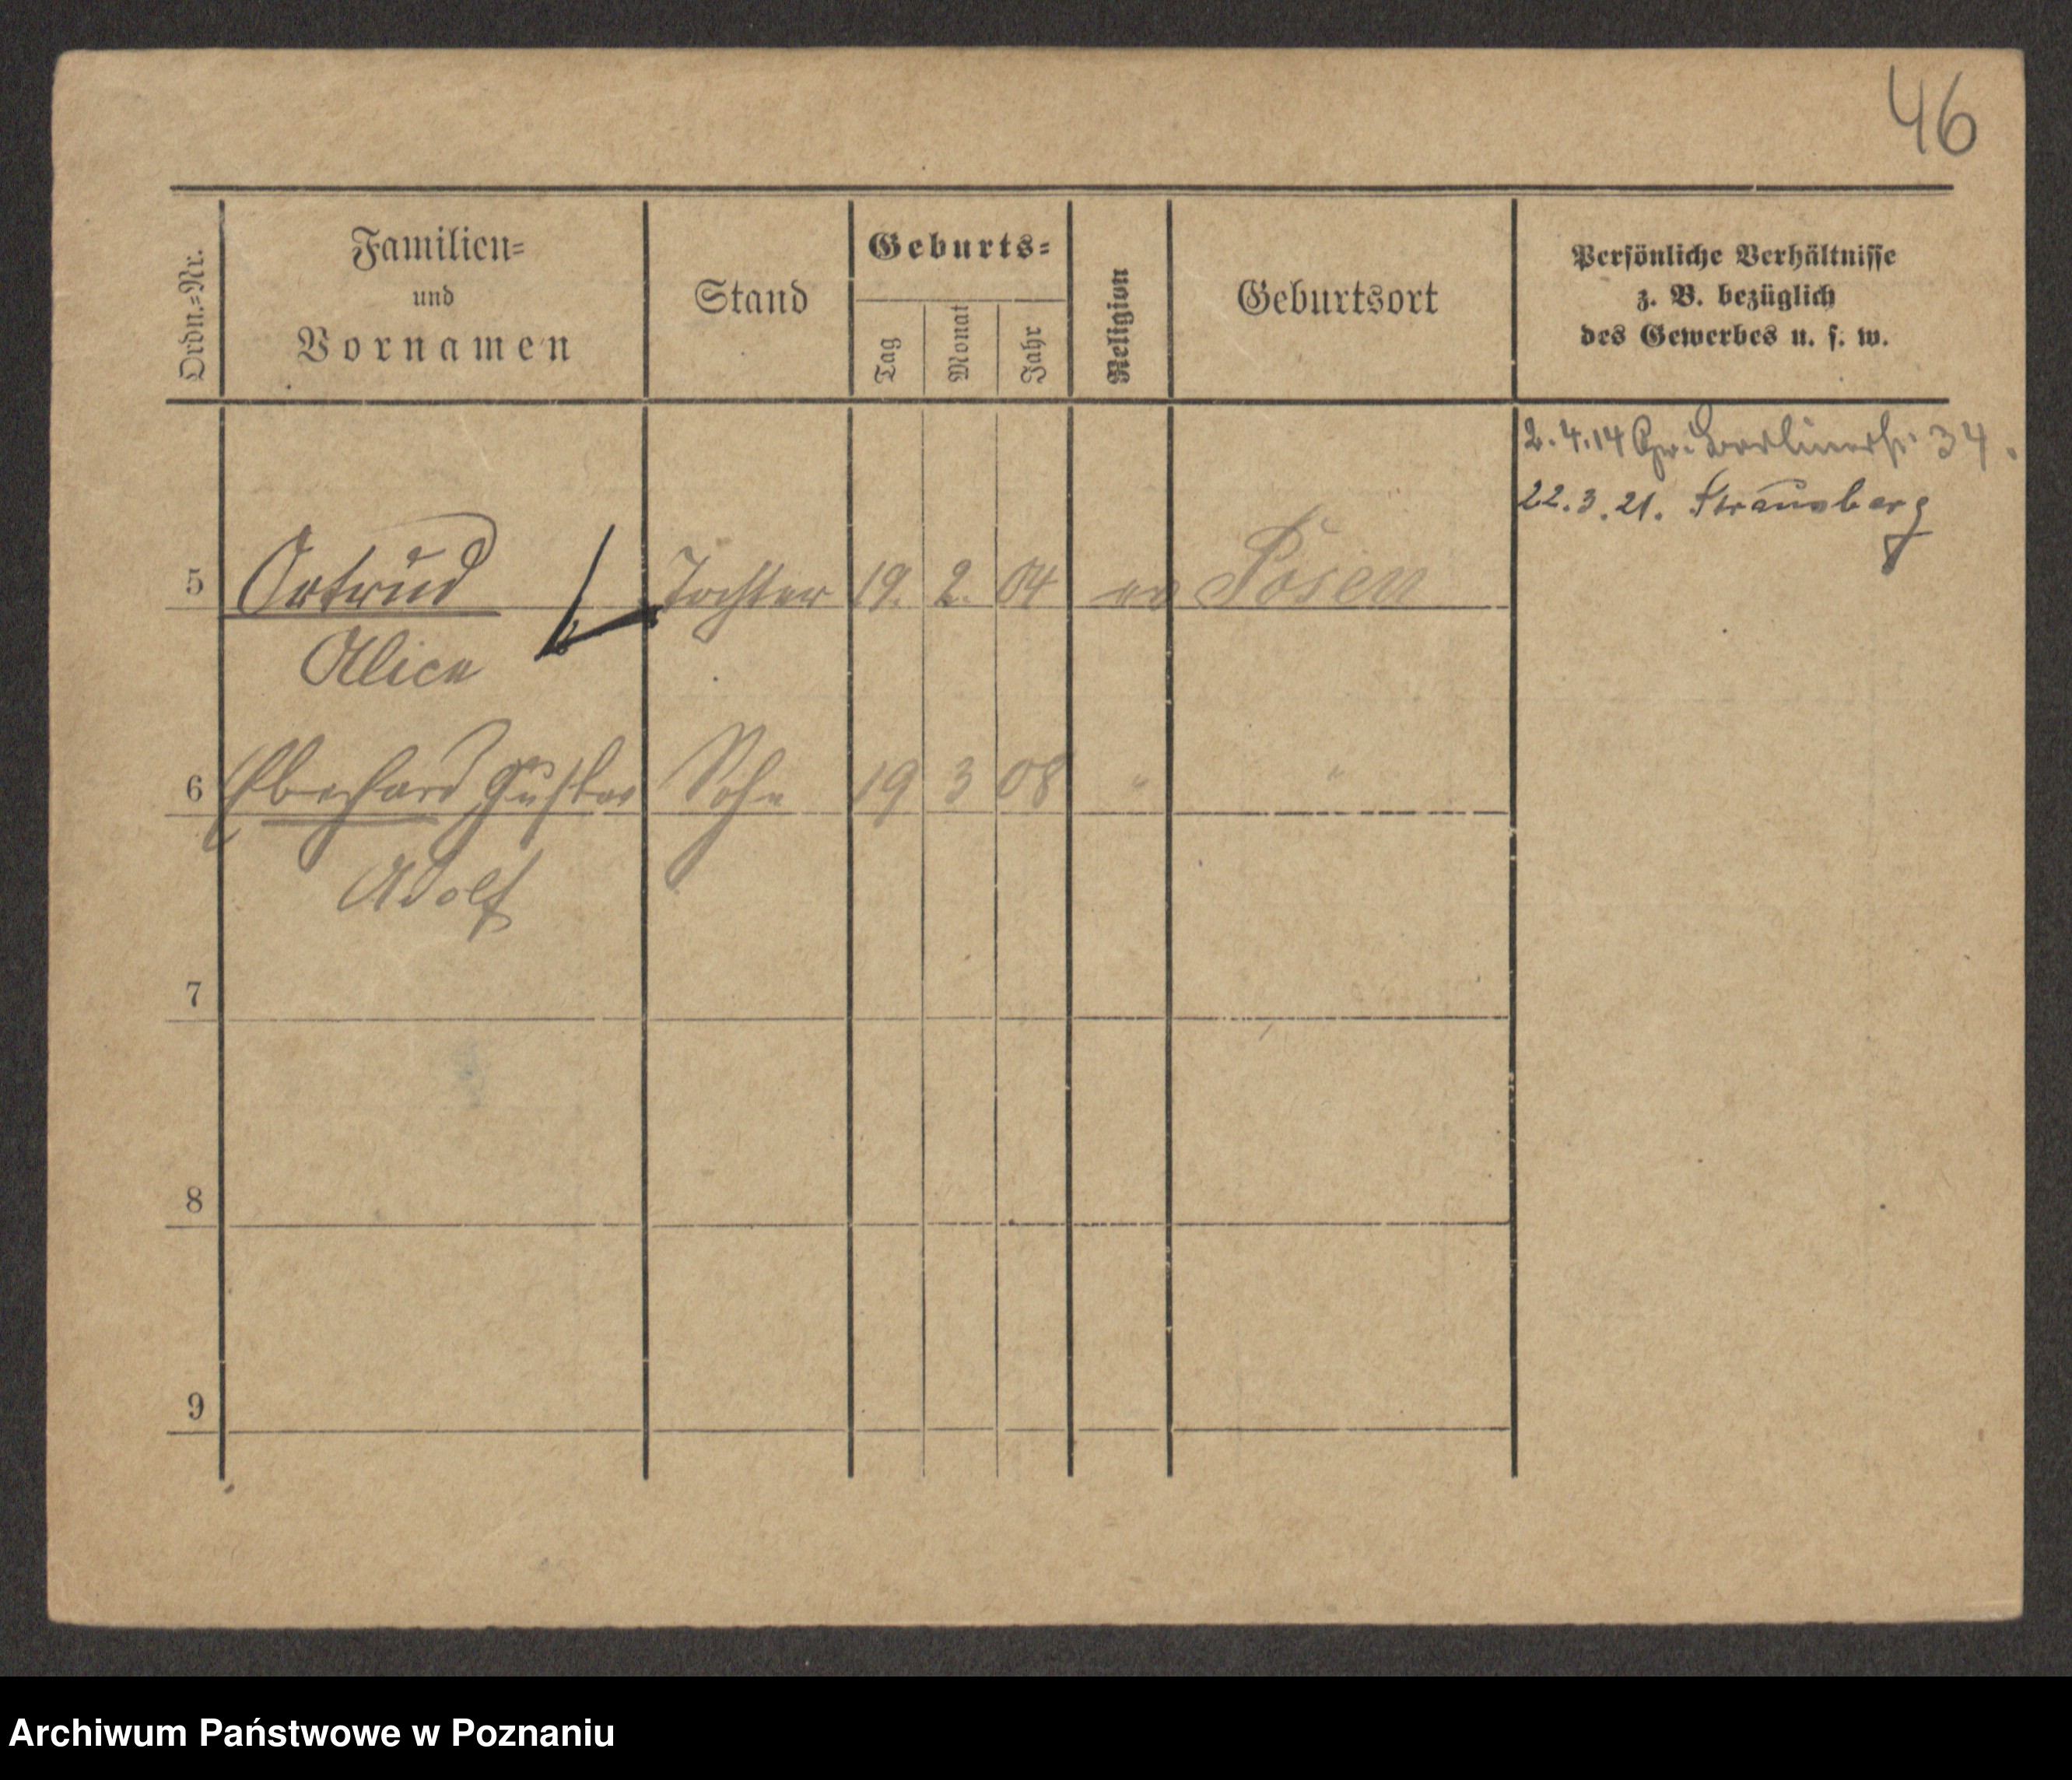 46
Ordn.=Nr.
Familien=
und
Vornamen
Stand
Geburts=
Tag
Monat
Jahr
Religion
Geburtsort
Persönliche Verhältnisse
z. B. bezüglich
des Gewerbes u. s. w.
2.4.14 Gr. Berlinerstr. 34.
22.3.21. Strausberg
5 Ortrud Tochter 19. 2. 04 ev Posen
Alice
6 Eberhard Gustav Sohn 19 3 08 " "
Adolf
7
8
9
Archiwum Państwowe w Poznaniu